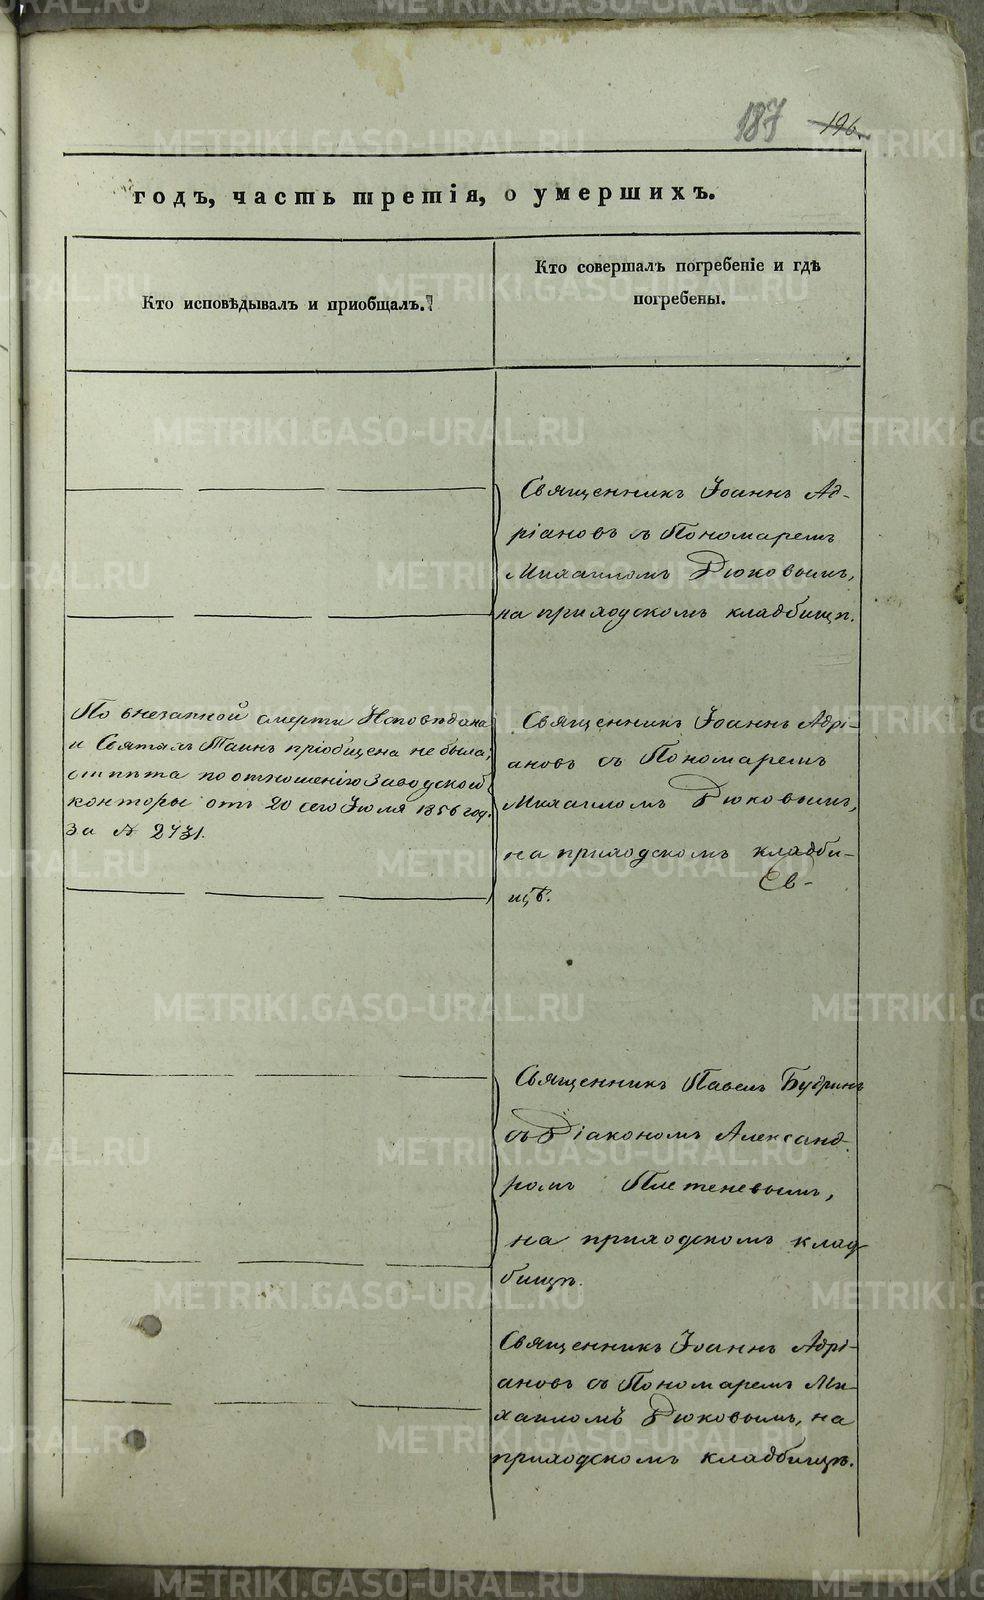 187 196.
годъ, часть третія, о умершихъ.
Кто исповѣдывалъ и приобщалъ.
Кто совершалъ погребеніе и гдѣ
погребены.
Священникъ Іоаннъ Ад-
ріановъ съ Пономаремъ
Михаиломъ Дюковымъ,
на приходскомъ кладбищѣ.
По внезапной смерти Исповѣдана
и Святыхъ Таинъ пріобщена не была;
отпѣта по отношенію Заводской
конторы отъ 20 сего Іюля 1856 год.
за № 2731.
Священникъ Іоаннъ Адрі-
ановъ съ Пономаремъ
Михаиломъ Дюковымъ,
на приходскомъ кладби-
щѣ.
Св-
Священникъ Павелъ Будринъ
съ Діакономъ Александ-
ромъ Плетеневымъ,
на приходскомъ клад
бищѣ.
Священникъ Іоаннъ Адрі-
ановъ съ Пономаремъ Ми-
хаиломъ Дюковымъ, на
приходскомъ кладбищѣ.
METRIKI.GASO-URAL.RU